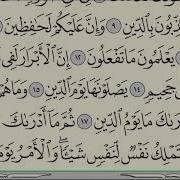 ذِّبُونَ بِٱلدِّينِ ٩ وَإِنَّ عَلَيْكُمْ لَحَٰفِظِينَ
يَعْلَمُونَ مَا تَفْعَلُونَ ١٢ إِنَّ ٱلْأَبْرَارَ لَفِى
جَحِيمٍ ١٤ يَصْلَوْنَهَا يَوْمَ ٱلدِّينِ ١٥ وَمَا هُمْ
رَىٰكَ مَا يَوْمُ ٱلدِّينِ ١٧ ثُمَّ مَآ أَدْرَىٰكَ
تَمْلِكُ نَفْسٌ لِّنَفْسٍ شَيْـًٔا وَٱلْأَمْرُ يَوْمَ